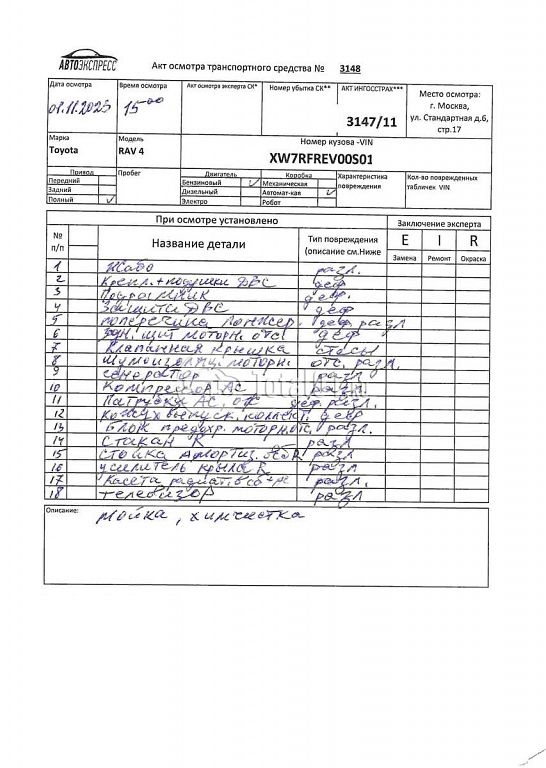 АВТОЭКСПРЕСС
Акт осмотра транспортного средства № 3148
Дата осмотра Время осмотра Акт осмотра эксперта СК* Номер убытка СК** АКТ ИНГОССТРАХ***
Место осмотра:
г. Москва,
ул. Стандартная д.6,
стр.17
01.11.2025 15 00
3147/11
Марка Модель Номер кузова -VIN
Toyota RAV 4 XW7RFREV00S01
Привод Пробег Двигатель Коробка Характеристика повреждения Кол-во поврежденных табличек VIN
Передний Бензиновый ✓ Механическая
Задний Дизельный Автомат-кая ✓
Полный ✓ Электро Робот
При осмотре установлено Заключение эксперта
№ п/п Название детали Тип повреждения (описание см.Ниже
E I R
Замена Ремонт Окраска
1 Жабо разл.
2 Крепл.+подушки ДВС деф
3 Подрамник деф.
4 Защита ДВС деф.
5 поперечина лонжер. деф, разл
6 щит моторн. отс. деф
7 Клапанная крышка
8 шумоизоляц. моторн. отс. разл.
9 генератор разл
10 Компрессор АС разл
11 Патрубки АС, деф. разл.
12 кожух выпуск. коллект. деф
13 Блок предохр. моторн.отс. разл.
14 Стакан R разл
15 Стойка амортиз. R разл
16 усилитель крыла R разл
17 Касета радиат. разл.
18 телевизор разл
Описание: мойка, химчистка